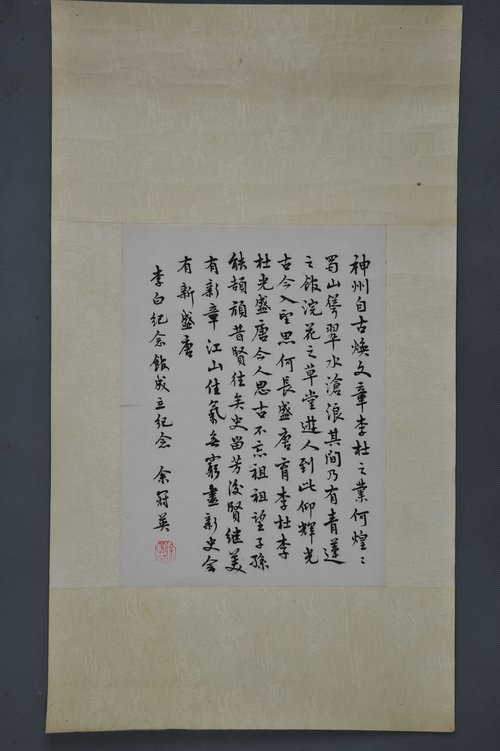 神州自古焕文章李杜之业何煌〻
蜀山耸翠水沧浪其间乃有青莲
之馆浣花之草堂游人到此仰辉光
古今入望思何长盛唐育李杜李
杜光盛唐今人思古不忘祖祖望子孙
能颉颃昔贤往矣史留芳后贤继美
有新章江山佳气无穷尽新史会
有新盛唐
李白纪念馆成立纪念 余冠英